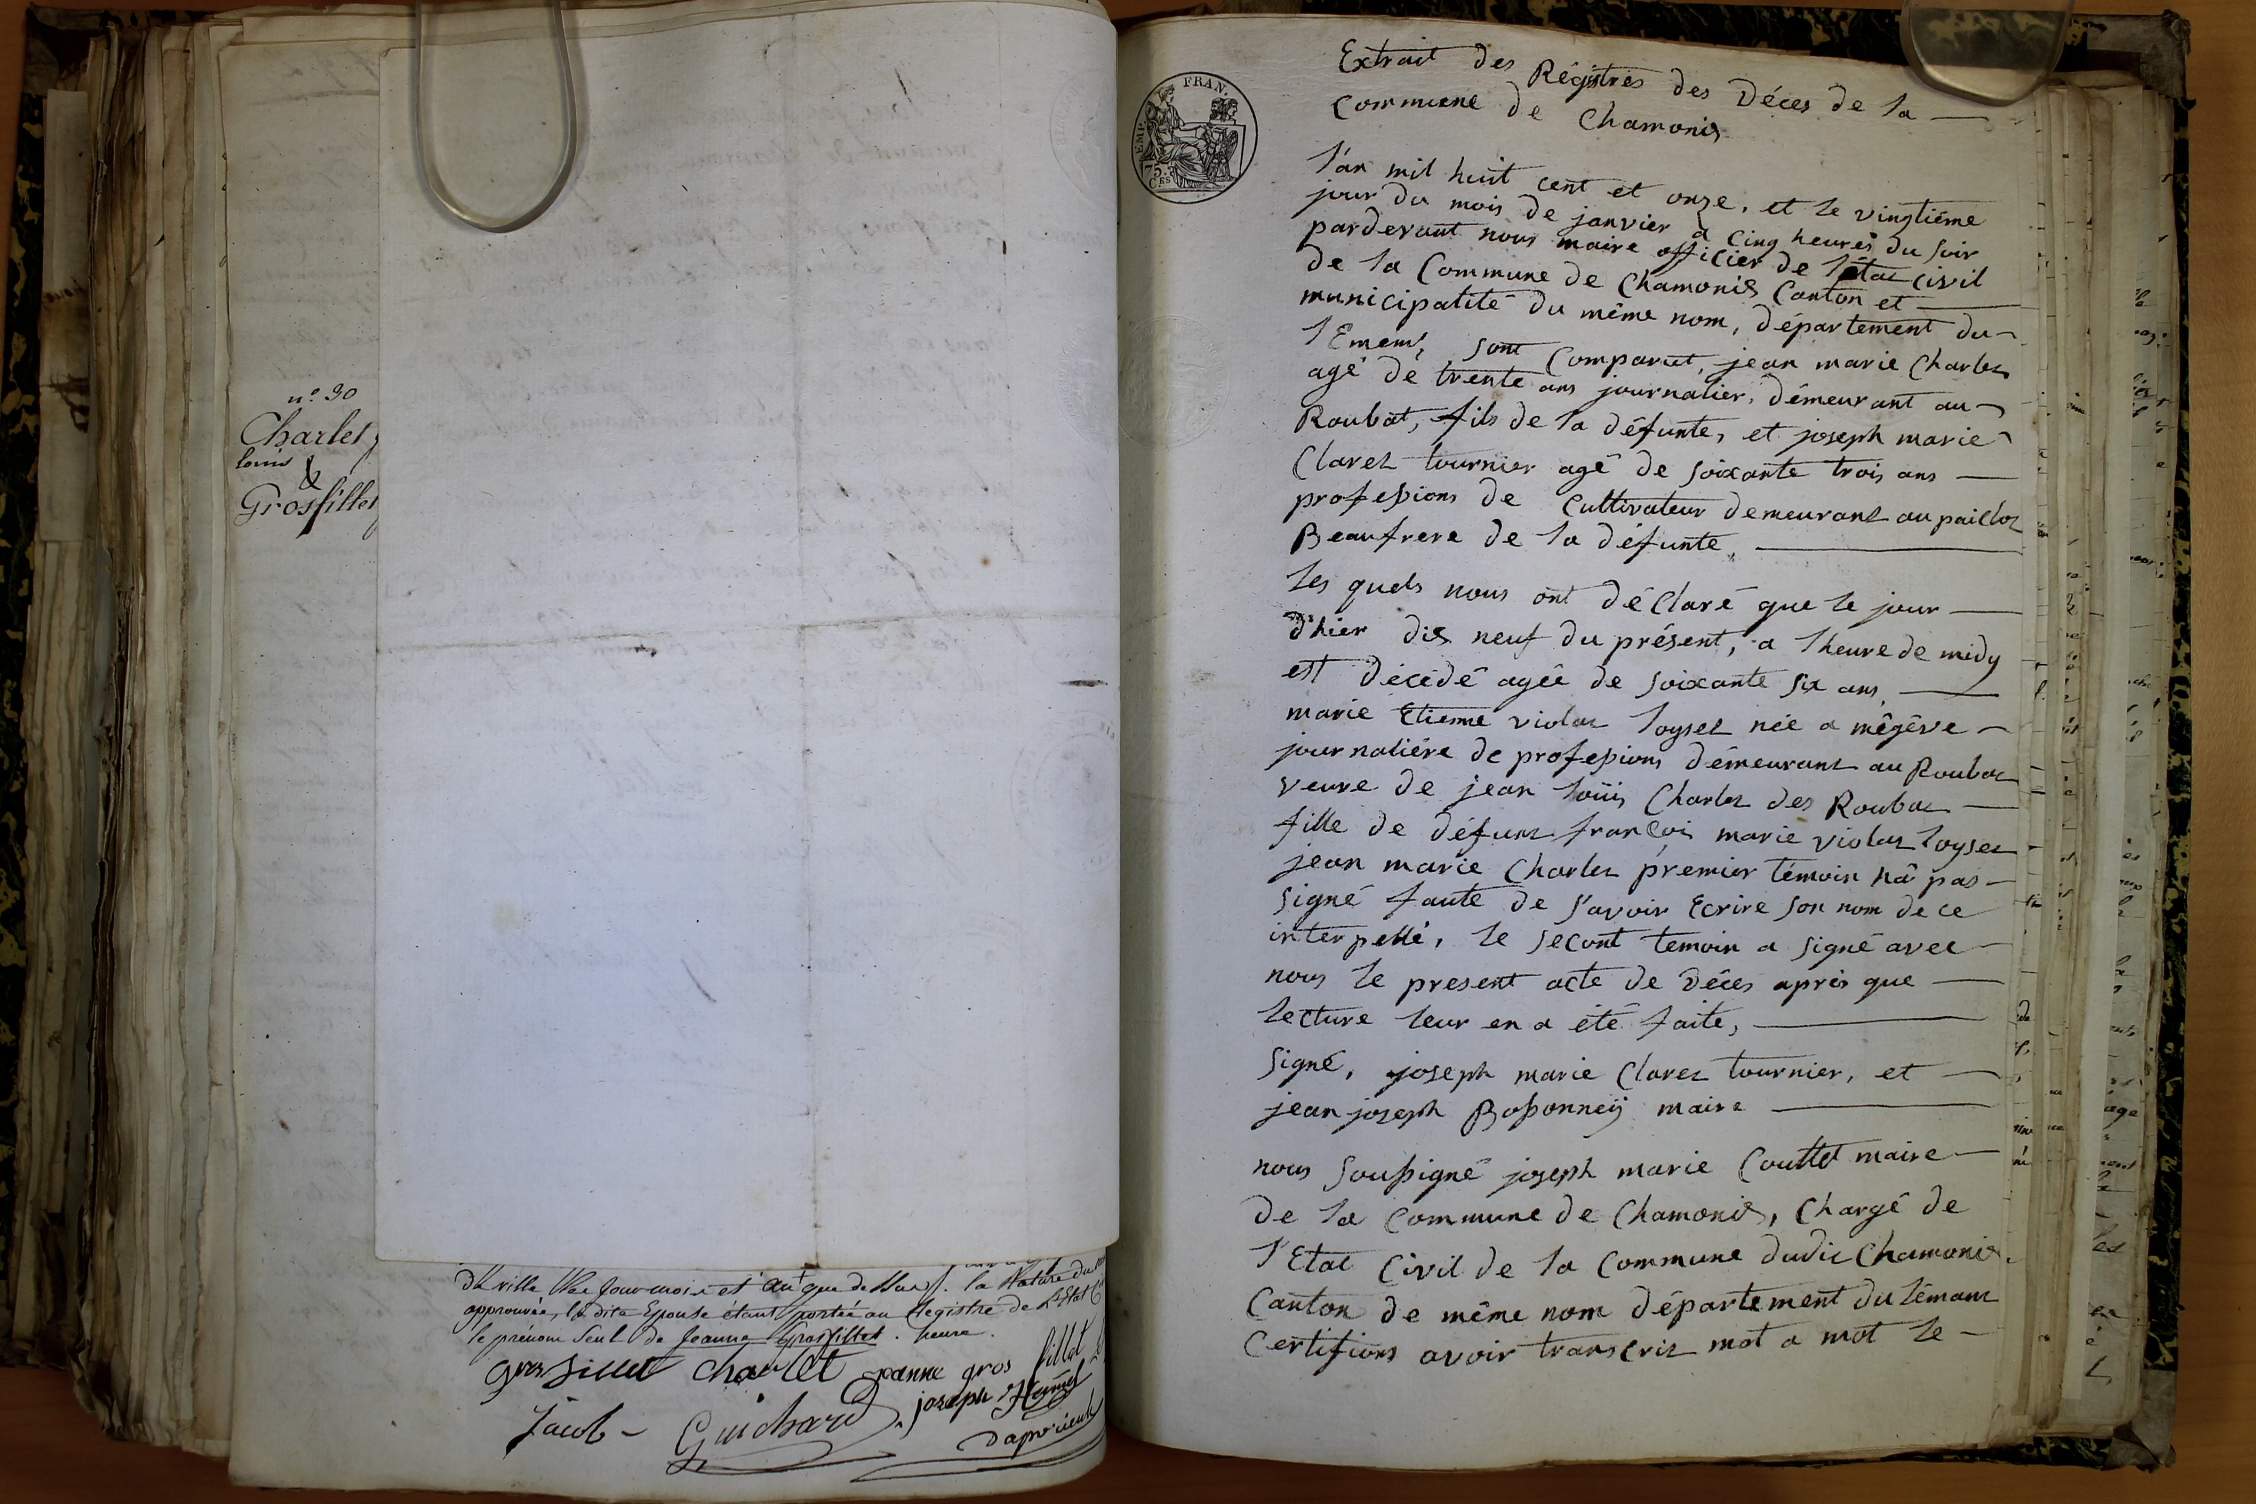 nº 30
Charlet
louis
&
Grosfillet
du ville les jour mois et an que dessus. la Nature du
approuvée, la dite Epouse étant portée au Registre de L'Etat
le prénom Seul de Jeanne Grosfillet. heure.
gros fillet Charlet Joanne gros fillet
Jacob Guichard joseph
EMP. FRAN.
75 Ces
Extrait des Régistres des Déces de la
Commune de Chamonix
l'an mil huit cent et onze, et le vingtiéme
jour du mois de janvier a cinq heures du soir
pardevant nous maire officier de l'état civil
de la Commune de Chamonix Canton et
municipalité du même nom, département du
lEman, sont comparut, jean marie Charlet
agé de trente ans journalier, démeurant au
Roubat, fils de la défunte, et joseph marie
Claret tournier agé de soixante trois ans
professions de Cultivateur demeurant au paiclot
Beaufrere de la défunte,
les quels nous ont déclaré que le jour
d'hier dix neuf du présent, a lheure de midy
est décédé agée de soixante six ans,
marie Etienne violat loyset née a mêgêve
journaliére de professions démeurant au Roubat
veuve de jean loüis Charlet des Roubat
fille de défunt françois marie violat loyset
jean marie Charlet premier témoin nâ pas
signé faute de s'avoir Ecrire son nom de ce
interpellé, le secont temoin a signé avec
nous le present acte de Déces aprés que
lecture leur en a été faite,
signé, joseph marie Claret tournier, et
jean joseph Bossonneÿ maire
nous soussigné joseph marie Couttet maire
de la Commune de Chamonix, Chargé de
l'Etat Civil de la Commune dudit Chamonix
Canton de même nom département du léman
Certifions avoir transcrit mot a mot le